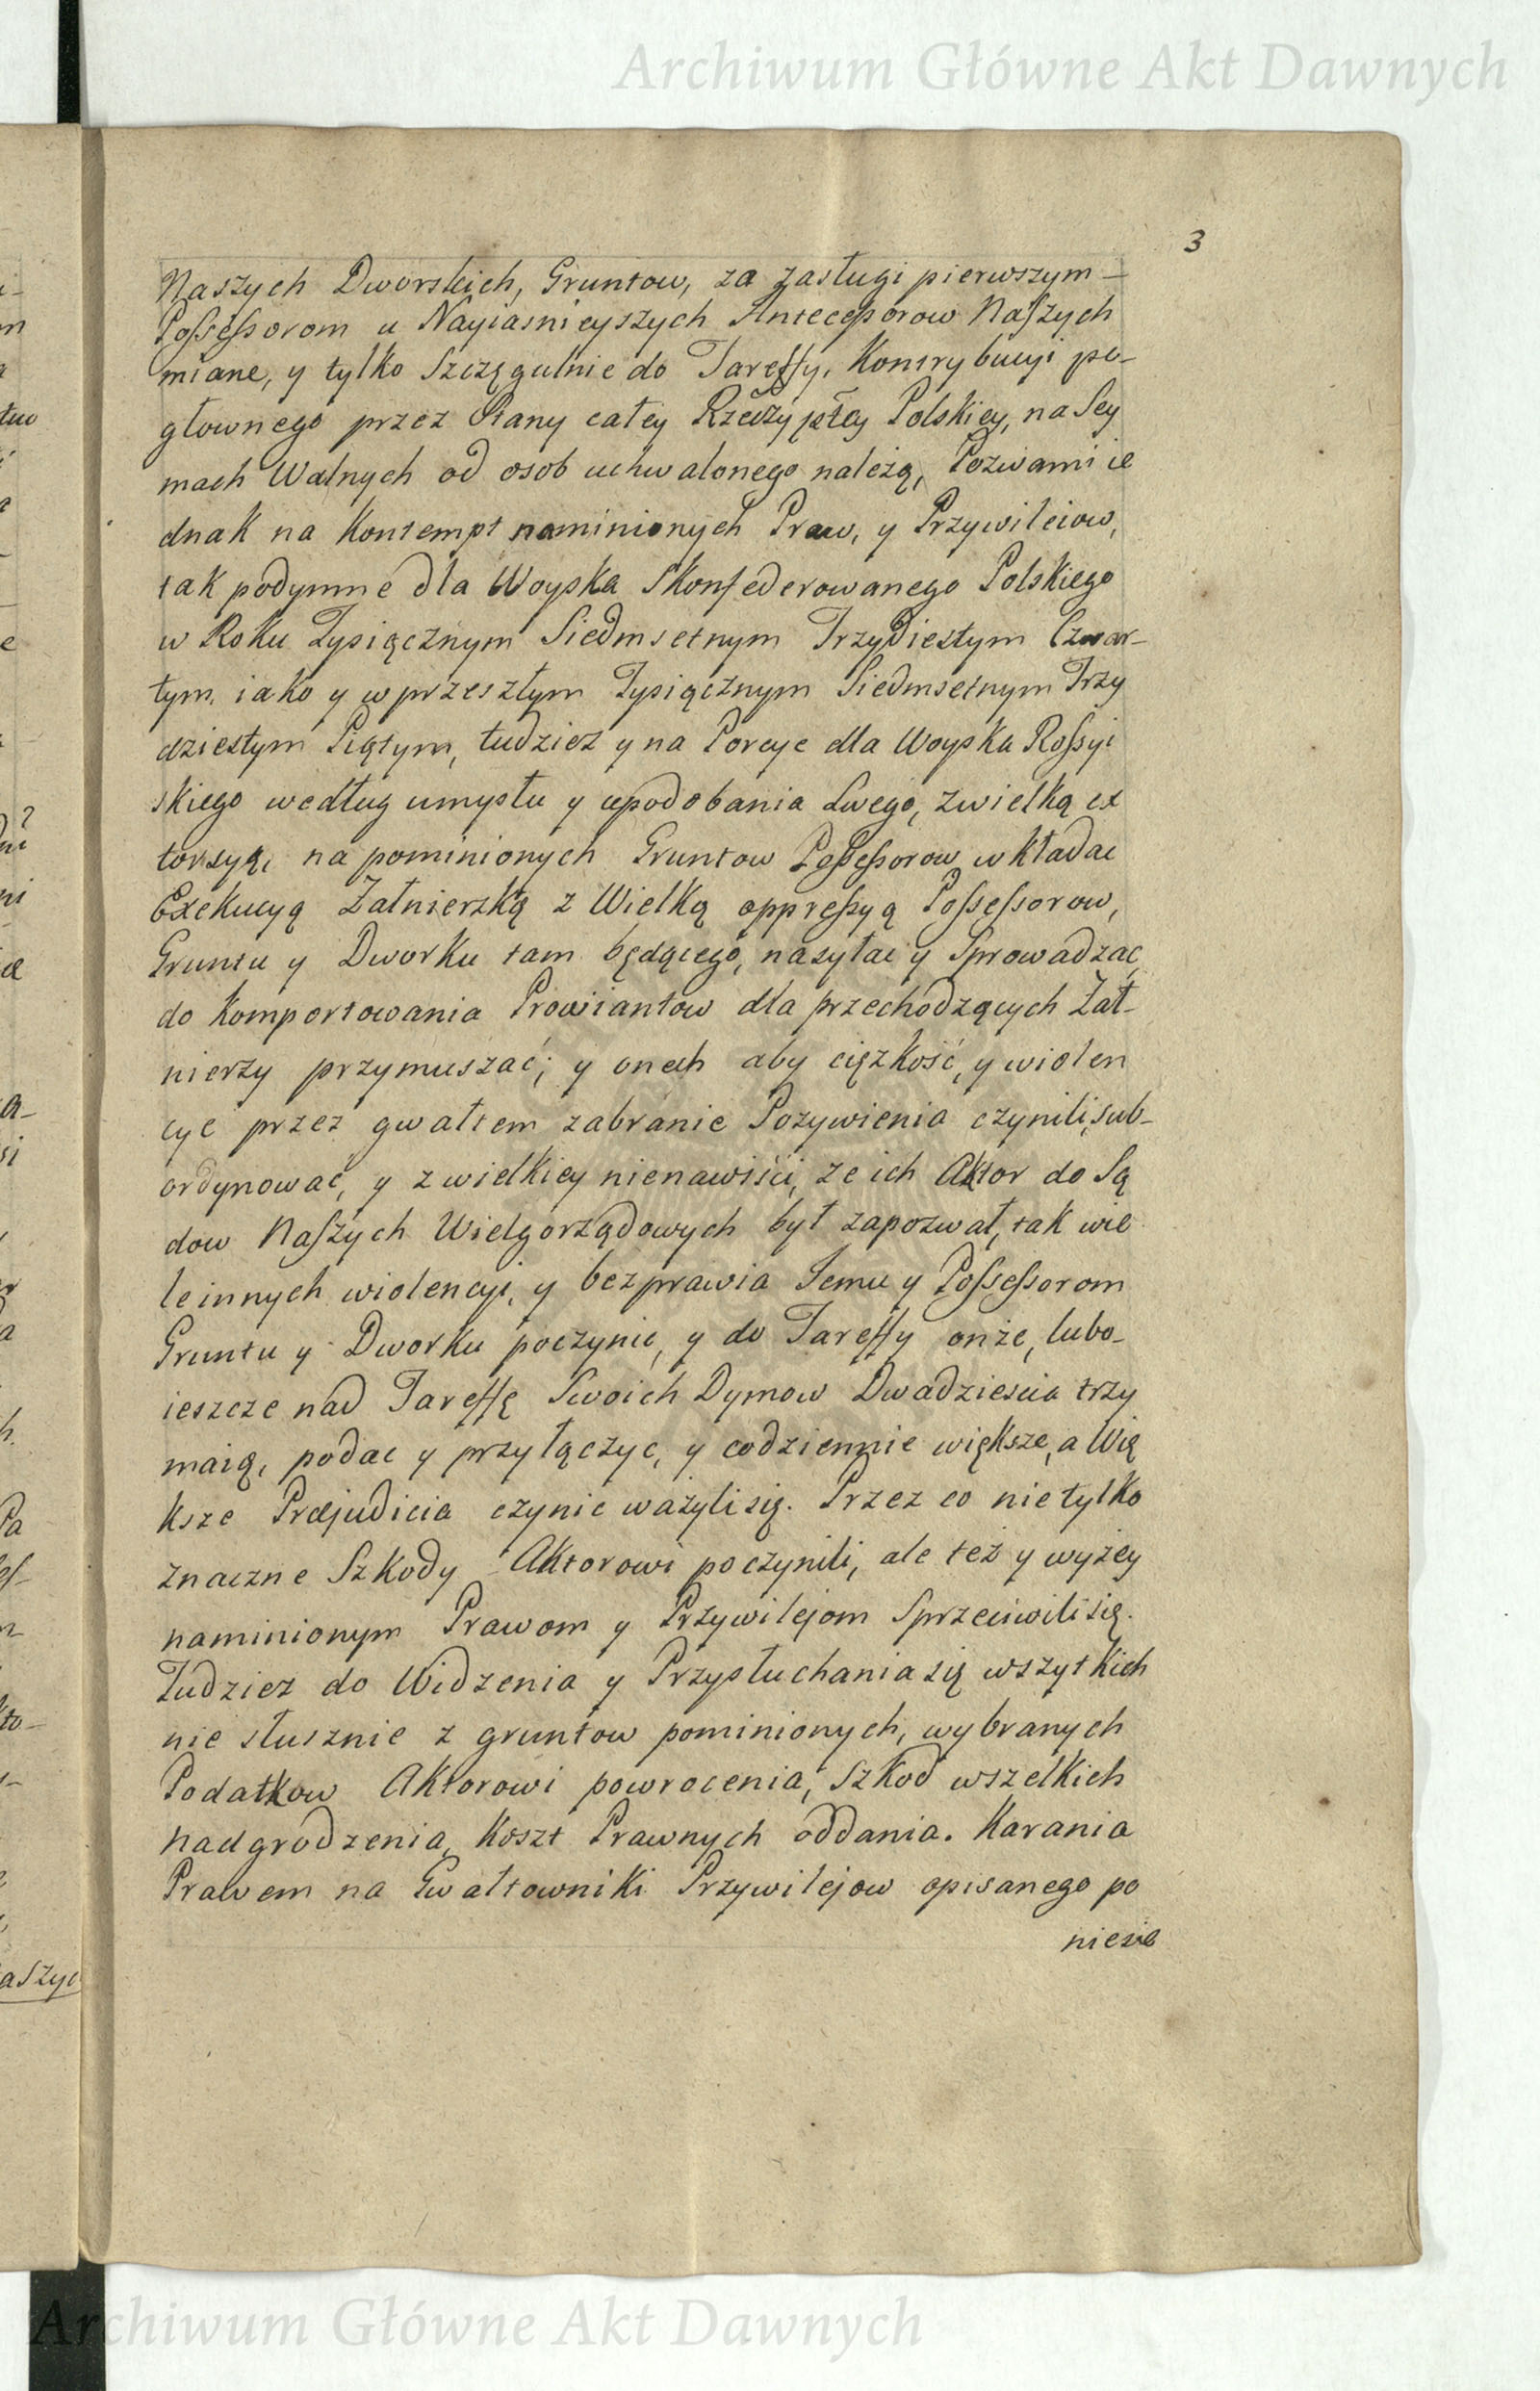 Archiwum Główne Akt Dawnych
3
Naszych Dworskich, Gruntow, za zasługi pierwszym-
Possessorom u Nayiasnieyszych Antecessorow Naszych
miane, y tylko Szczęgulnie do Tareffy, Kontrybucyi po-
głownego przez Stany całey Rzeczyptey Polskiey, na Sey
mach Walnych od osob uchwalonego należą, Pozwani ie
dnak na Kontempt naminionych Praw, y Przywileiow,
tak podymne dla Woyska Skonfederowanego Polskiego
w Roku Tysiącznym Siedmsetnym Trzydiestym Czwar-
tym, iako y w przeszłym Tysiącznym Siedmsetnym Trzy
dziestym Piątym, tudziez y na Porcye dla Woyska Rossyi
skiego według umysłu y upodobania Swego, zwielką ex
torsyą, na pominionych Gruntow Possessorow wkładac
Exekucyą Żałnierską z Wielką oppressyą Possessorow,
Gruntu y Dworku tam będącego, nasyłac y Sprowadzac,
do Komportowania Prowiantow dla przechodzących Żał-
nierzy przymuszać; y onech aby ciężkość, y wiolen
cye przez gwałtem zabranie Pozywienia czynili, sub-
ordynować, y z wielkiey nienawiści, ze ich Aktor do Są
dow Naszych Wielgorządowych był zapozwał, tak wie
le innych wiolencyi, y bezprawia Jemu y Possessorom
Gruntu y Dworku poczynic, y do Tareffy onże, lubo-
ieszcze nad Tareffę Swoich Dymow Dwadziescia trzy
maią, podac y przyłączyc, y codziennie większe, a Wię
ksze Præjudicia czynic ważyli się. Przez co nie tylko
znaczne Szkody Aktorowi poczynili, ale też y wyżey
naminionym Prawom y Przywilejom Sprzeciwili się.
Tudziez do Widzenia y Przysłuchania się wszytkich
nie słusznie z gruntow pominionych, wybranych
Podatkow Aktorowi powrocenia, Szkod wszelkich
nadgrodzenia, Koszt Prawnych oddania. Karania
Prawem na Gwałtowniki Przywilejow opisanego po
niesie
Archiwum Główne Akt Dawnych